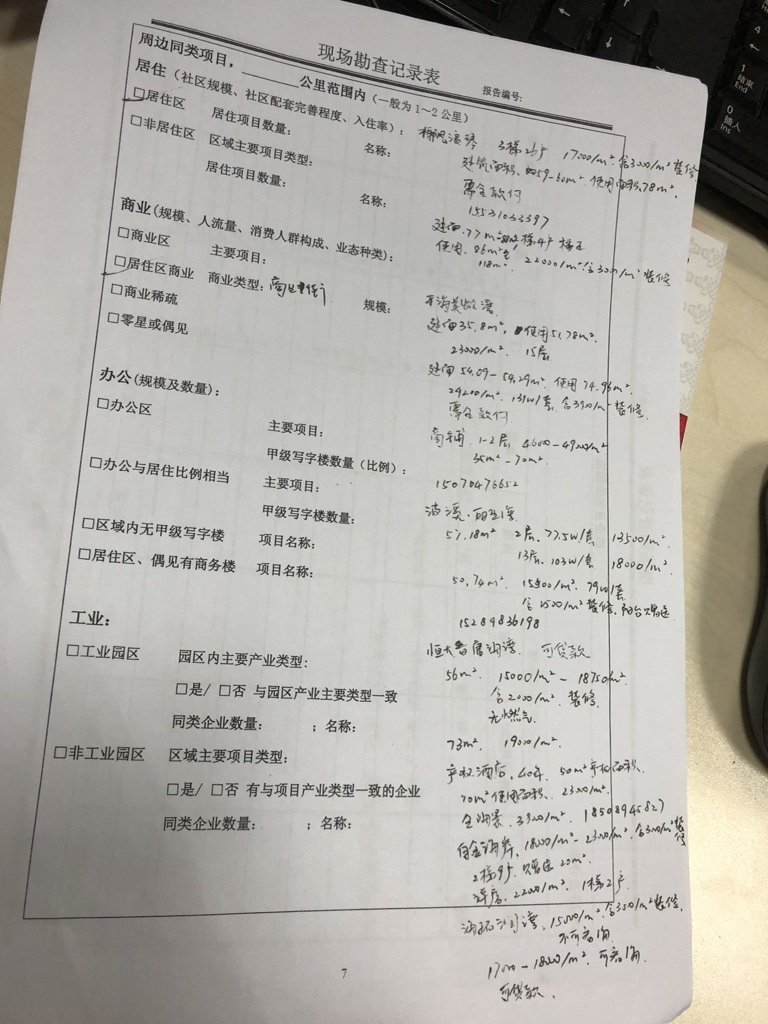 现场勘查记录表
报告编号:
周边同类项目，______公里范围内（一般为1～2公里）
居住（社区规模、社区配套完善程度、入住率）：
□居住区 居住项目数量： 名称：
□非居住区 区域主要项目类型：
居住项目数量： 名称：
3栋2户 17000/m² 含3000/m²装修
建筑面积 59-60m² 使用面积78m²
需全款付
15531033397
商业(规模、人流量、消费人群构成、业态种类)：
□商业区 主要项目：
□居住区商业 商业类型： 规模：
□商业稀疏
□零星或偶见
建面 77m²
使用 86m²
118m² 22000/m² 含3000/m²装修
建面35.8m², 使用51.78m².
23000/m². 15层
建面54.09-54.29m². 使用74.96m².
24200/m². 139W/套 含3900/m²装修.
需全款付
办公(规模及数量)：
□办公区 主要项目：
甲级写字楼数量（比例）：
□办公与居住比例相当 主要项目：
甲级写字楼数量：
□区域内无甲级写字楼 项目名称：
□居住区、偶见有商务楼 项目名称：
商铺 1-2层
35m²-70m².
15070476652
51.18m² 2层, 77.5W/套 13500/m².
13层, 103W/套 18000/m².
50.74m². 15500/m². 79W/套
含2500/m²装修, 阳台赠送
15289836198
工业：
□工业园区 园区内主要产业类型:
□是/ □否 与园区产业主要类型一致
同类企业数量： ；名称:
□非工业园区 区域主要项目类型：
□是/ □否 有与项目产业类型一致的企业
同类企业数量： ；名称：
可贷款
56m². 15000/m²-18750/m².
含2000/m². 装修
无燃气.
73m². 19000/m².
产权酒店, 40年. 50m²产权面积.
70m²使用面积. 23000/m².
全海景. 39000/m². 18508945827
18000/m²-23000/m². 含3000/m²装修
2栋9户. 赠送20m².
洋房. 22000/m². 1栋2户.
15000/m². 含3500/m²装修.
17000-18000/m².
可贷款.
7